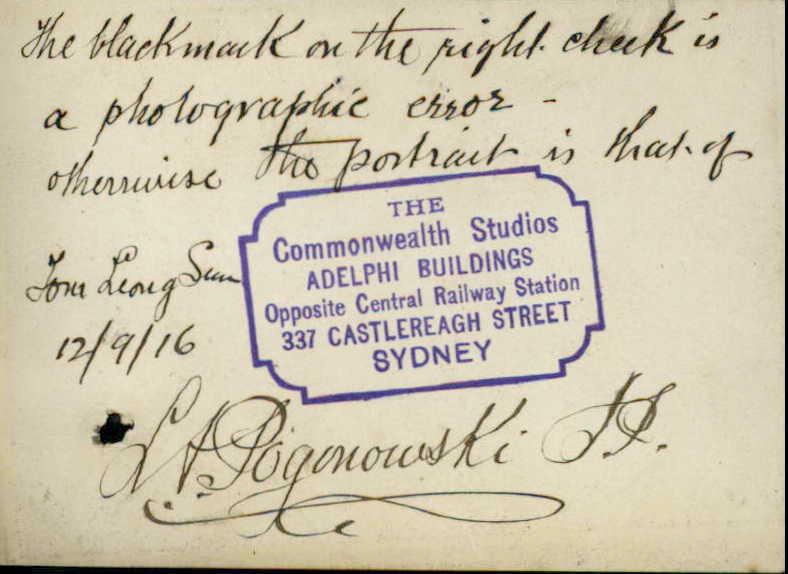 The blackmark on the right cheek is
a photographic error -
otherwise the portrait is that of
Tom Leong Sun
12/9/16
THE
Commonwealth Studios
ADELPHI BUILDINGS
Opposite Central Railway Station
337 CASTLEREAGH STREET
SYDNEY
L A Pogonowski J.P.